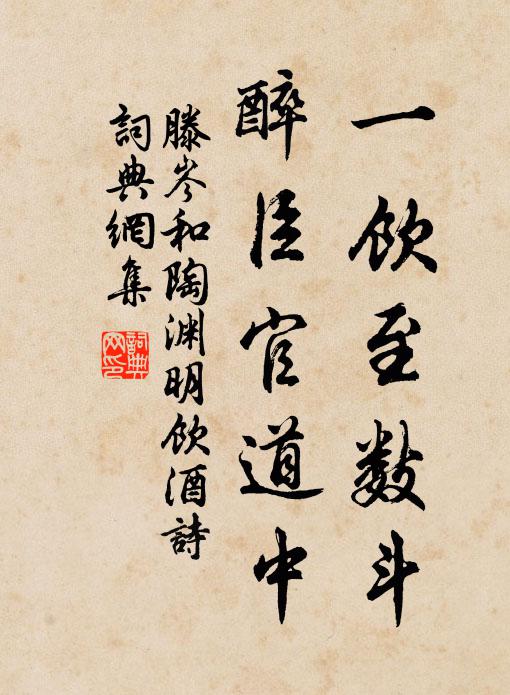 一飲至數斗
醉臣官道中
滕岑和陶淵明飲酒詩
詞典網集
詞典
网印